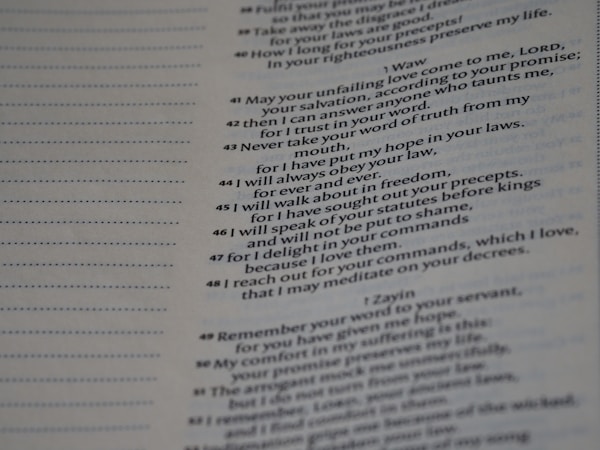 38 Fulfil your promise
so that you may be
39 Take away the disgrace I dread
for your laws are good.
40 How I long for your precepts!
In your righteousness preserve my life.
ו Waw
41 May your unfailing love come to me, LORD,
your salvation, according to your promise;
42 then I can answer anyone who taunts me,
for I trust in your word.
43 Never take your word of truth from my
mouth,
for I have put my hope in your laws.
44 I will always obey your law,
for ever and ever.
45 I will walk about in freedom,
for I have sought out your precepts.
46 I will speak of your statutes before kings
and will not be put to shame,
47 for I delight in your commands
because I love them.
48 I reach out for your commands, which I love,
that I may meditate on your decrees.
ז Zayin
49 Remember your word to your servant,
for you have given me hope.
50 My comfort in my suffering is this:
your promise preserves my life.
51 The arrogant mock me unmercifully,
but I do not turn from your law.
52 I remember, LORD, your ancient laws,
and I find comfort in them.
53 Indignation grips me because of the wicked,
your law.
of my song